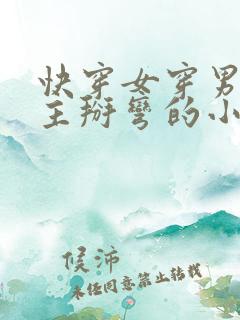 快穿女穿男
主掰彎的小
候沛
未任同意禁止转载